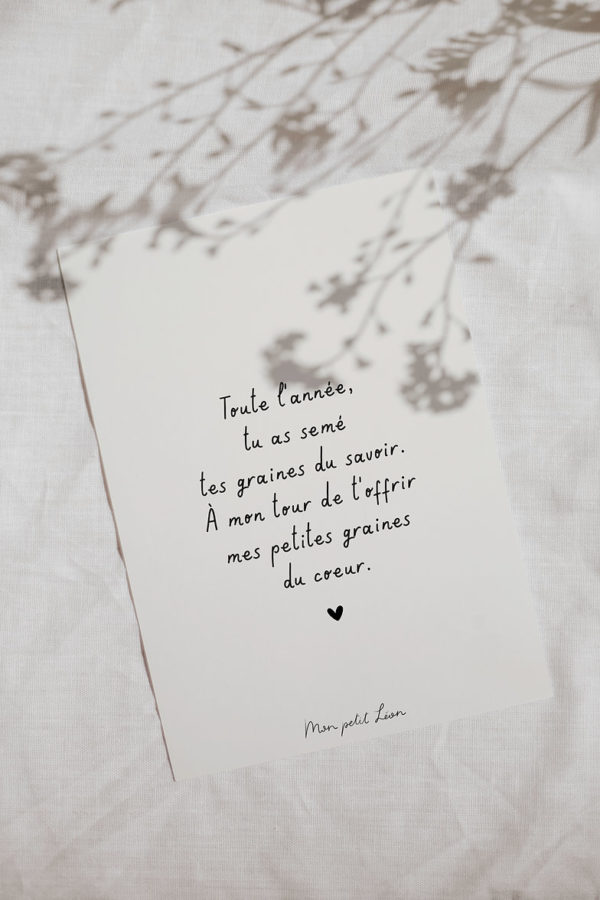 Toute l'année,
tu as semé
tes graines du savoir.
À mon tour de t'offrir
mes petites graines
du coeur.
Mon petit Léon